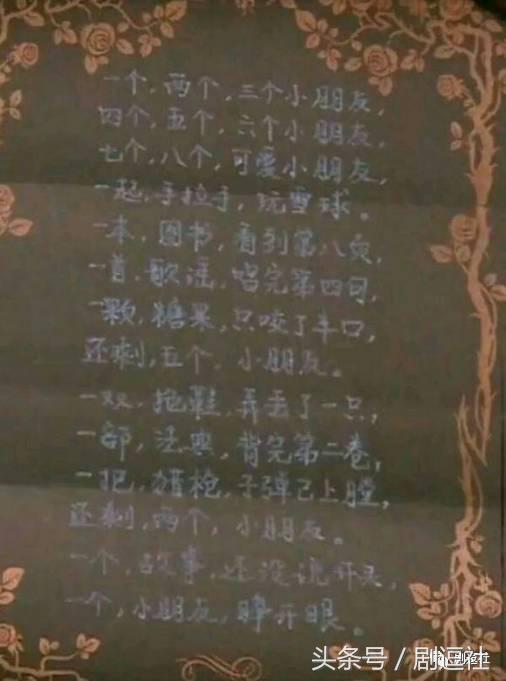 一个，两个，三个小朋友，
四个，五个，六个小朋友，
七个，八个，可爱小朋友，
一起，手拉手，玩雪球。
一本，图书，看到第八页，
一首，歌谣，唱完第四句，
一颗，糖果，只咬了半口，
还剩，五个，小朋友。
一双，拖鞋，弄丢了一只，
一部，法典，背完第二卷，
一把，猎枪，子弹已上膛，
还剩，两个，小朋友。
一个，故事，还没说开头，
一个，小朋友，睁开眼。
头条号 / 剧逗社